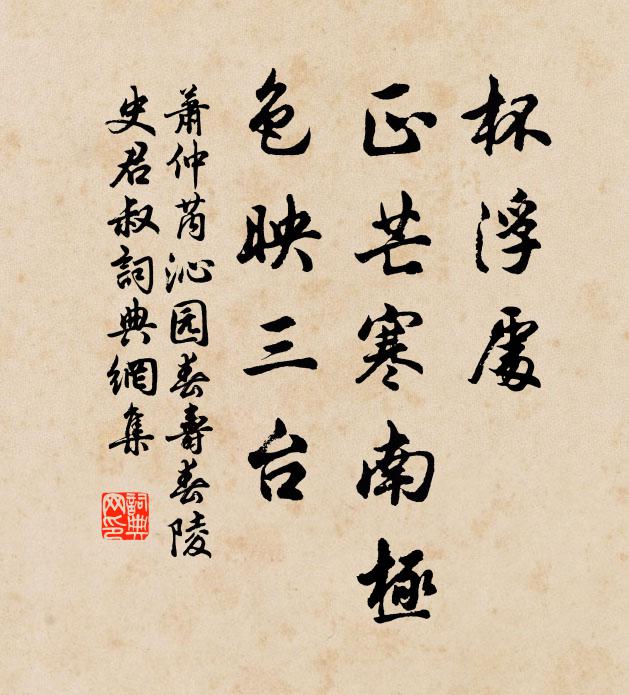 杯浮處
正芒寒南極
色映三台
萧仲芮沁园春壽春陵
史君叔詞典網集
詞典网印